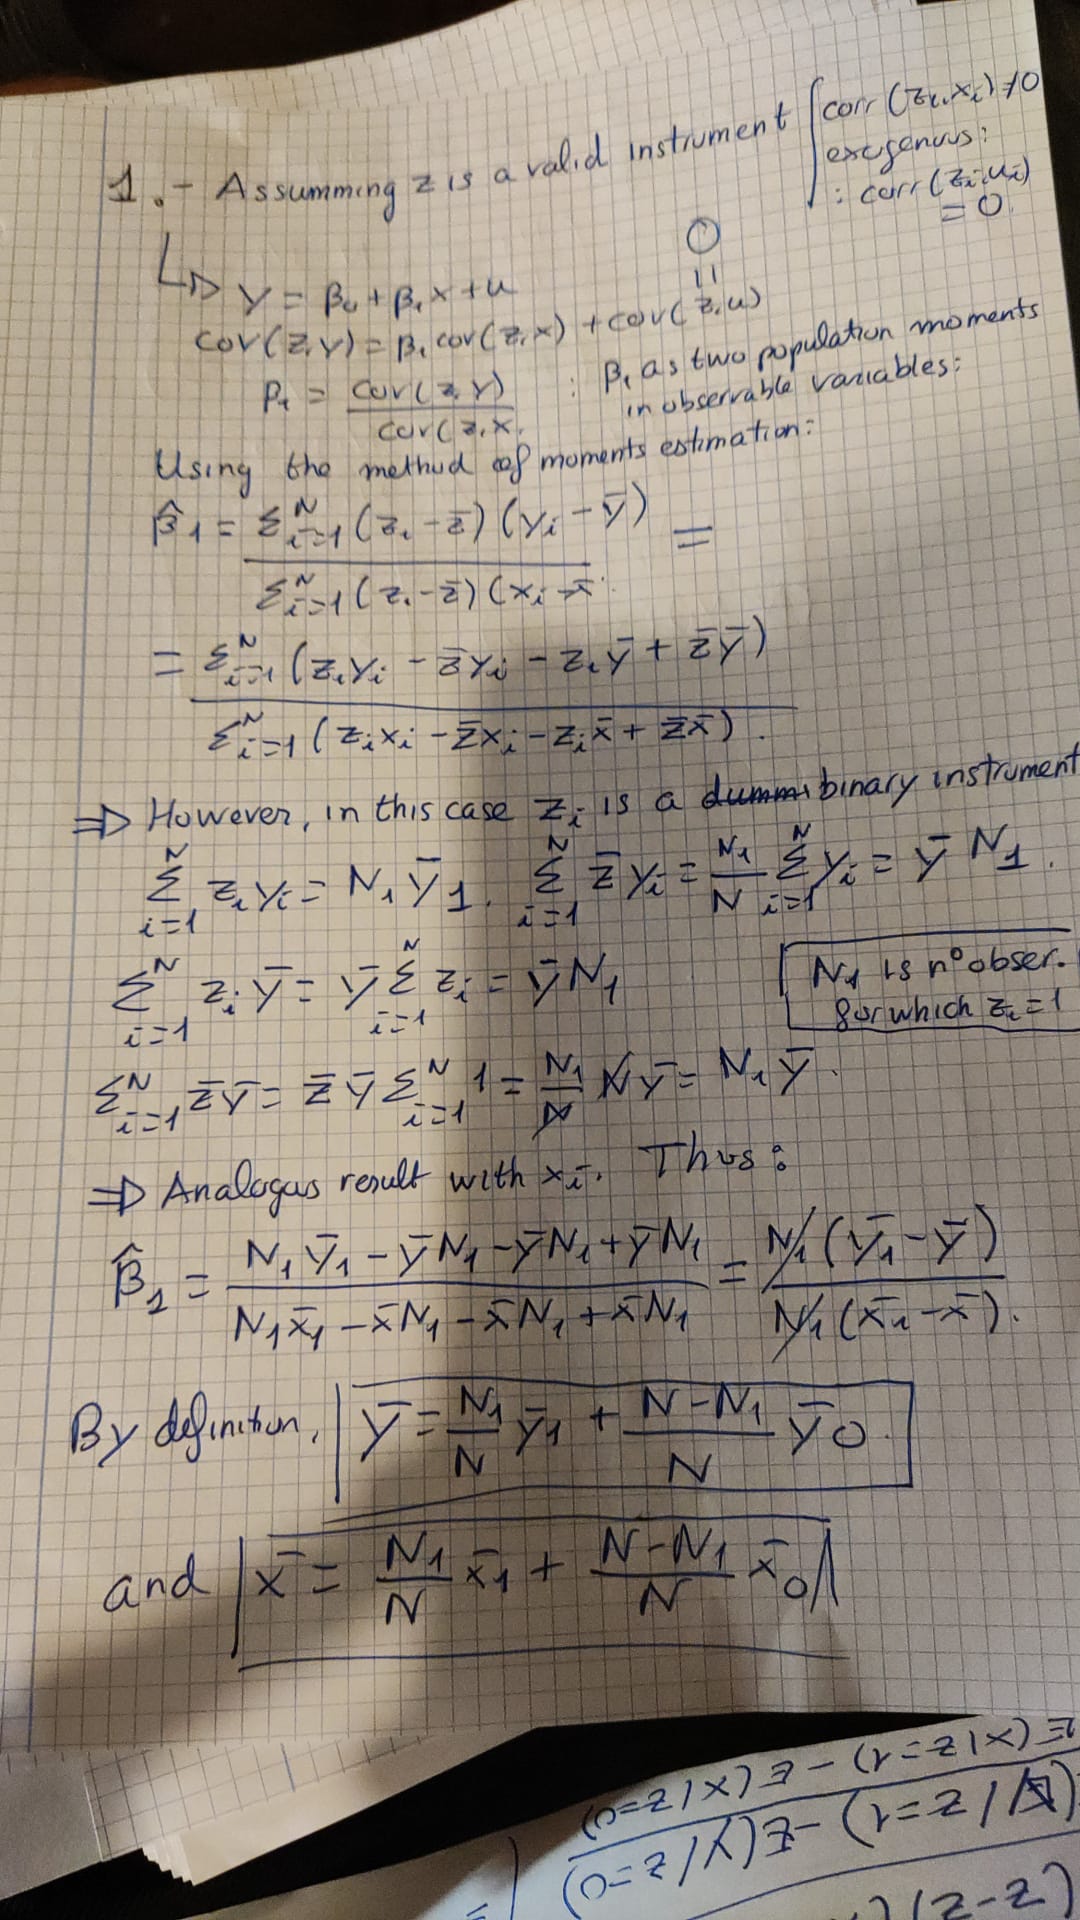 1.- Assumming z is a valid instrument { corr (zi, xi) ≠ 0
exogenous:
: corr (zi, ui)
= 0.
↳ y = β0 + β1 x + u
0
=
cov(z, y) = β1 cov(z, x) + cov(z, u)
β1 = cov(z, y) / cov(z, x : β1 as two population moments
in observable variables:
Using the method of moments estimation:
β̂1 = Σ^N_{i=1} (zi - z̄) (yi - ȳ) / Σ^N_{i=1} (zi - z̄) (xi - x̄ =
= Σ^N_{i=1} (zi yi - z̄ yi - zi ȳ + z̄ ȳ) / Σ^N_{i=1} (zi xi - z̄ xi - zi x̄ + z̄ x̄).
⇒ However, in this case zi is a binary instrument
Σ^N_{i=1} zi yi = N1 ȳ1. Σ^N_{i=1} z̄ yi = N1/N Σ^N_{i=1} yi = ȳ N1.
Σ^N_{i=1} zi ȳ = ȳ Σ^N_{i=1} zi = ȳ N1
N1 is nº obser.
for which zi = 1
Σ^N_{i=1} z̄ ȳ = z̄ ȳ Σ^N_{i=1} 1 = N1/N N ȳ = N1 ȳ.
⇒ Analogus result with xi. Thus:
β̂1 = N1 ȳ1 - ȳ N1 - ȳ N1 + ȳ N1 / N1 x̄1 - x̄ N1 - x̄ N1 + x̄ N1 = N1 (ȳ1 - ȳ) / N1 (x̄1 - x̄).
By definition, ȳ = N1/N ȳ1 + N-N1/N ȳ0.
and x̄ = N1/N x̄1 + N-N1/N x̄0
(z-z)
E(y/z=0)
E(x/z=1) - E(x/z=0)